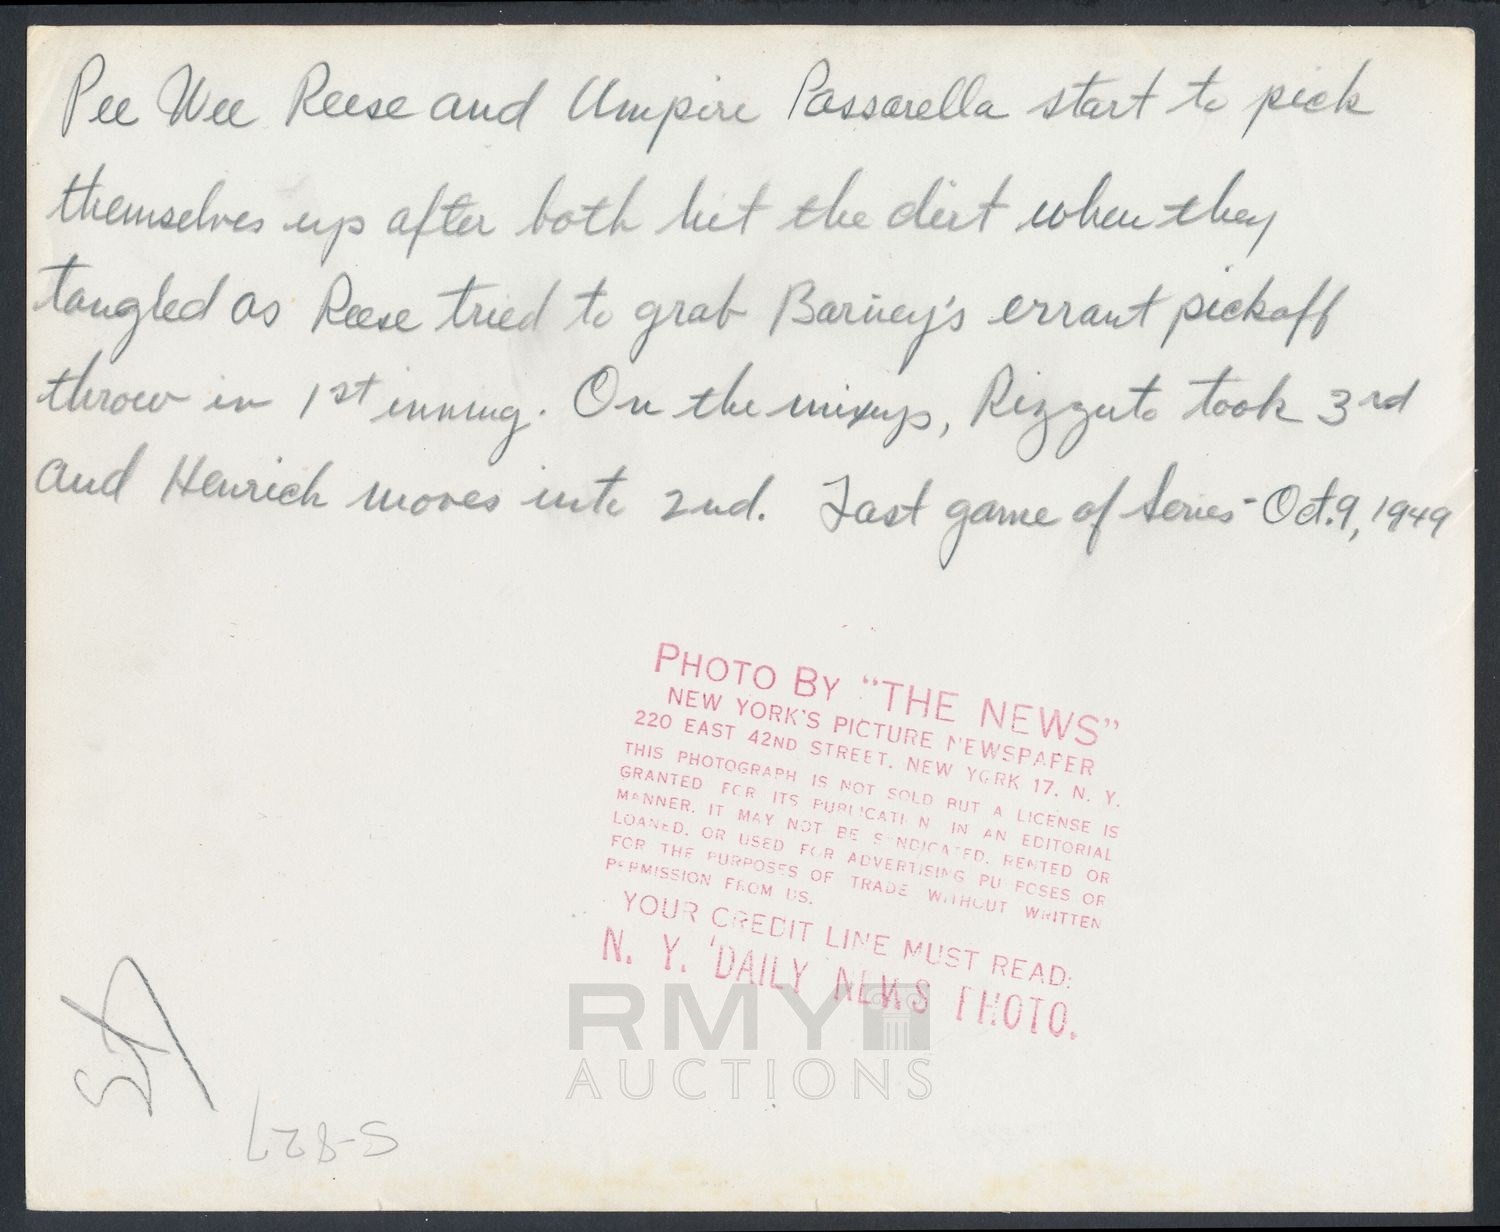 Pee Wee Reese and Umpire Passarella start to pick
themselves up after both hit the dirt when they
tangled as Reese tried to grab Barney's errant pickoff
throw in 1st inning. On the mixup, Rizzuto took 3rd
and Henrich moves into 2nd. Last game of Series - Oct. 9, 1949
PHOTO BY "THE NEWS"
NEW YORK'S PICTURE NEWSPAPER
220 EAST 42ND STREET, NEW YORK 17, N. Y.
THIS PHOTOGRAPH IS NOT SOLD BUT A LICENSE IS
GRANTED FOR ITS PUBLICATION IN AN EDITORIAL
MANNER. IT MAY NOT BE SYNDICATED, RENTED OR
LOANED, OR USED FOR ADVERTISING PURPOSES OR
FOR THE PURPOSES OF TRADE WITHOUT WRITTEN
PERMISSION FROM US.
YOUR CREDIT LINE MUST READ:
N. Y. DAILY NEWS PHOTO.
RMY
AUCTIONS
S-827